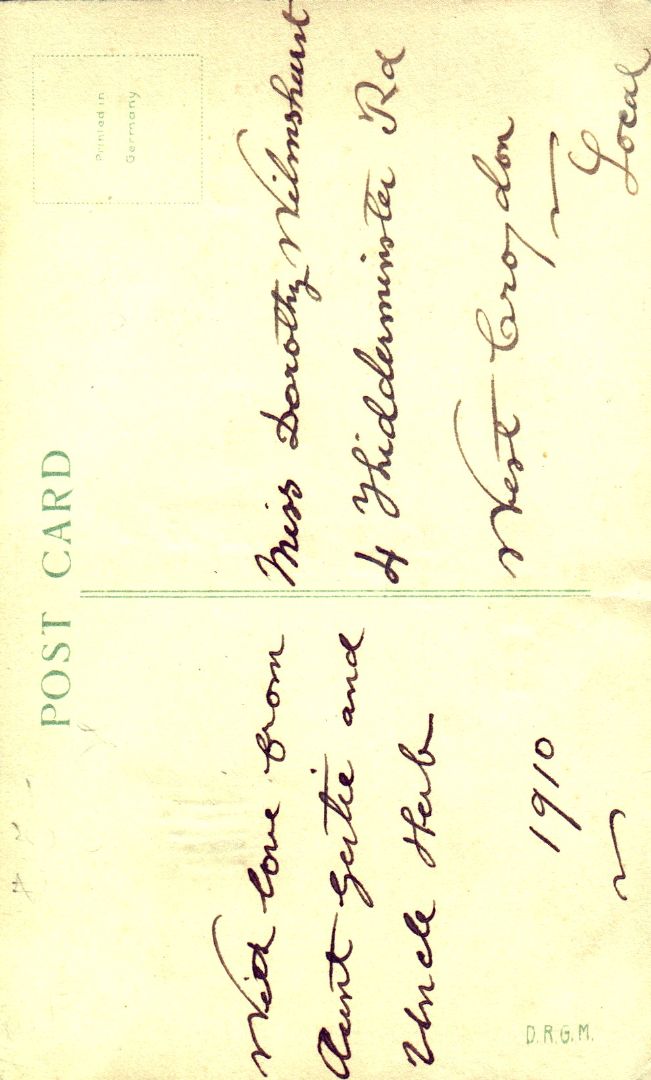 POST CARD
Printed in
Germany
With love from
Aunt Gertie and
Uncle Herb
1910
Miss Dorothy Wilmshurst
4 Khidderminster Rd
West Croydon
Local
D.R.G.M.